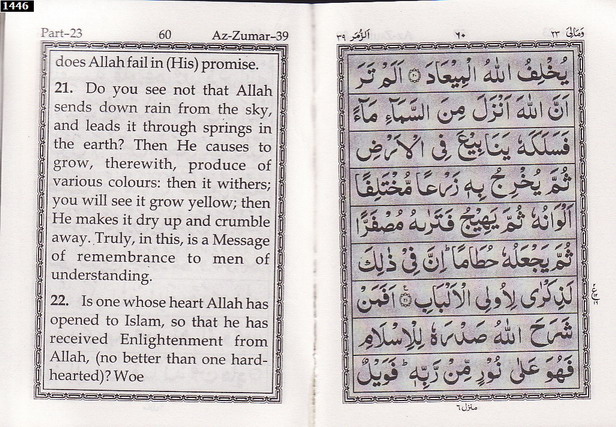 1446
Part-23 60 Az-Zumar-39
does Allah fail in (His) promise.
21. Do you see not that Allah
sends down rain from the sky,
and leads it through springs in
the earth? Then He causes to
grow, therewith, produce of
various colours: then it withers;
you will see it grow yellow; then
He makes it dry up and crumble
away. Truly, in this, is a Message
of remembrance to men of
understanding.
22. Is one whose heart Allah has
opened to Islam, so that he has
received Enlightenment from
Allah, (no better than one hard-
hearted)? Woe
وَمَالِيَ ٢٣ ٦٠ اَلزُّمَر ٣٩
يُخْلِفُ اللّٰهُ الْمِيْعَادَ ۝۲۰ اَلَمْ تَرَ
اَنَّ اللّٰهَ اَنْزَلَ مِنَ السَّمَآءِ مَآءً
فَسَلَكَهٗ يَنَابِيْعَ فِى الْاَرْضِ
ثُمَّ يُخْرِجُ بِهٖ زَرْعًا مُّخْتَلِفًا
اَلْوَانُهٗ ثُمَّ يَهِيْجُ فَتَرٰىهُ مُصْفَرًّا
ثُمَّ يَجْعَلُهٗ حُطَامًا ؕ اِنَّ فِىْ ذٰلِكَ
لَذِكْرٰى لِاُولِى الْاَلْبَابِ ۝۲۱ اَفَمَنْ
شَرَحَ اللّٰهُ صَدْرَهٗ لِلْاِسْلَامِ
فَهُوَ عَلٰى نُوْرٍ مِّنْ رَّبِّهٖ ؕ فَوَيْلٌ
منزل ٦